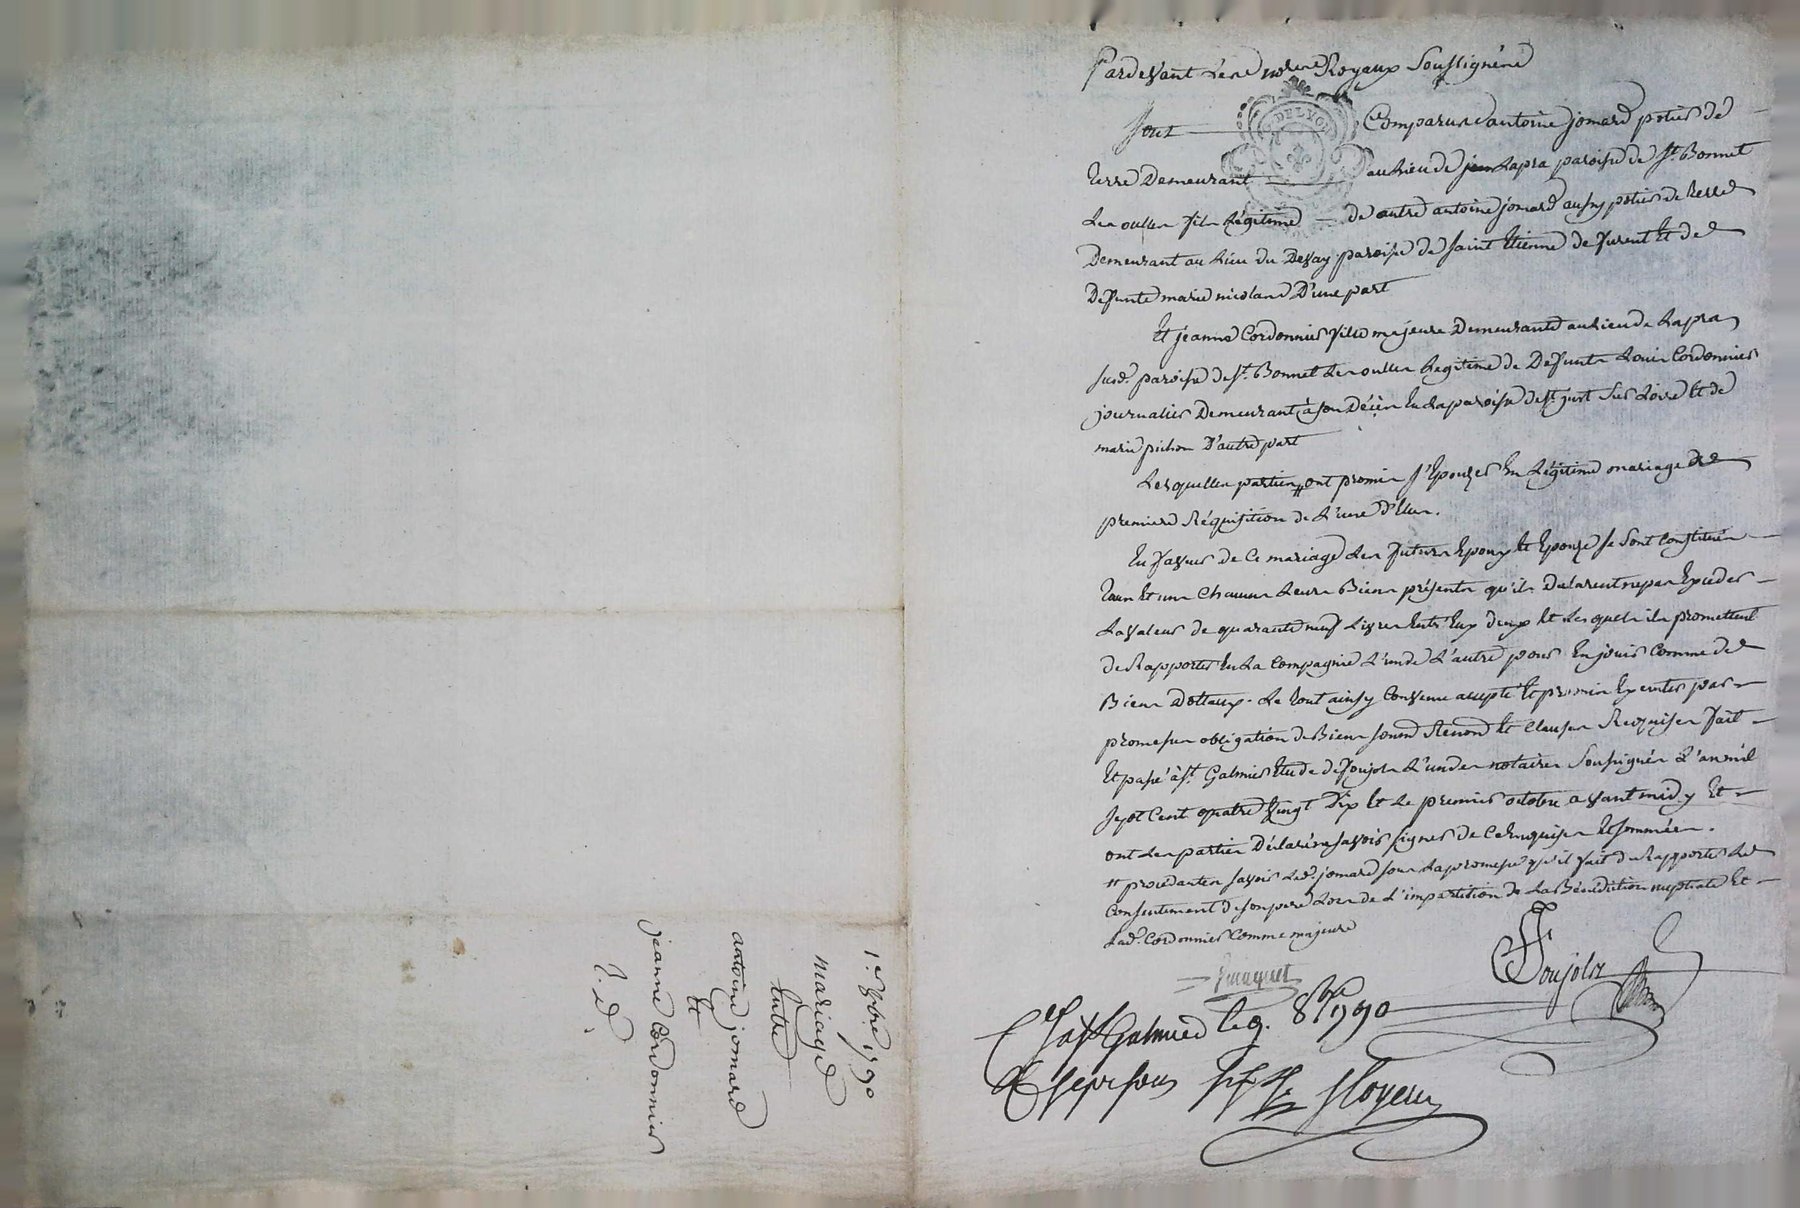 Pardevant les no.res Royaux soussignés
furent Comparus antoine jomard potier de
terre Demeurant au lieu de Lapra paroisse de St. Bonnet
Les oulles fils Légitime de autre antoine jomard aussy potier de terre
Demeurant au Lieu du Devay paroisse de saint Etienne de furent Et de
Defunte marie nicolas D'une part
Et jeanne Cordonnier fille majeure Demeurante au Lieu de Lapra
susd. paroisse de St. Bonnet Les oulles Legitime de Defunts Louis Cordonnier
journalier Demeurant à son Décès En la paroisse de St just sur Loire Et de
marie pichon D'autre part
Lesquelles parties # ont promis s'Epouzer En Légitime mariage de
premiere Réquisition de L'une d'Elles.
En faveur de Ce mariage Les futurs Epoux Et Epouze se sont Constitués
tous Et un Chacun Leurs Biens présents qu'ils Declarent ne pas Exceder
La valeur de quarante neuf Livres Entr'Eux deux Et Lesquels ils promettent
de Rapporter En La Compagnie L'un de L'autre pour En jouir Comme de
Biens Dottaux. Le tout ainsy Convenu accepté Et promis Executer par
promesses obligation de Biens soumis Renond Et Clauses Requises fait
Et passé à St. Galmier Etude de Foujols L'un des notaires Soussignés L'an mil
sept Cent quatre vingt Dix Et Le premier octobre avant midy Et
ont Les parties Déclaré ne savoir signer de Ce Enquises Et sommées.
# procedantes savoir Led. jomard sous La promesse qu'il fait de Rapporter Le
Consentement de son pere Lors de L'impartition de La Bénédiction nuptiale Et
Lad. Cordonnier Comme majeure
Foujols
C.lé à St Galmier le 9. 8bre 1790
1.er 8bre 1790
mariage
Entre
antoine jomard
Et
jeanne Cordonnier